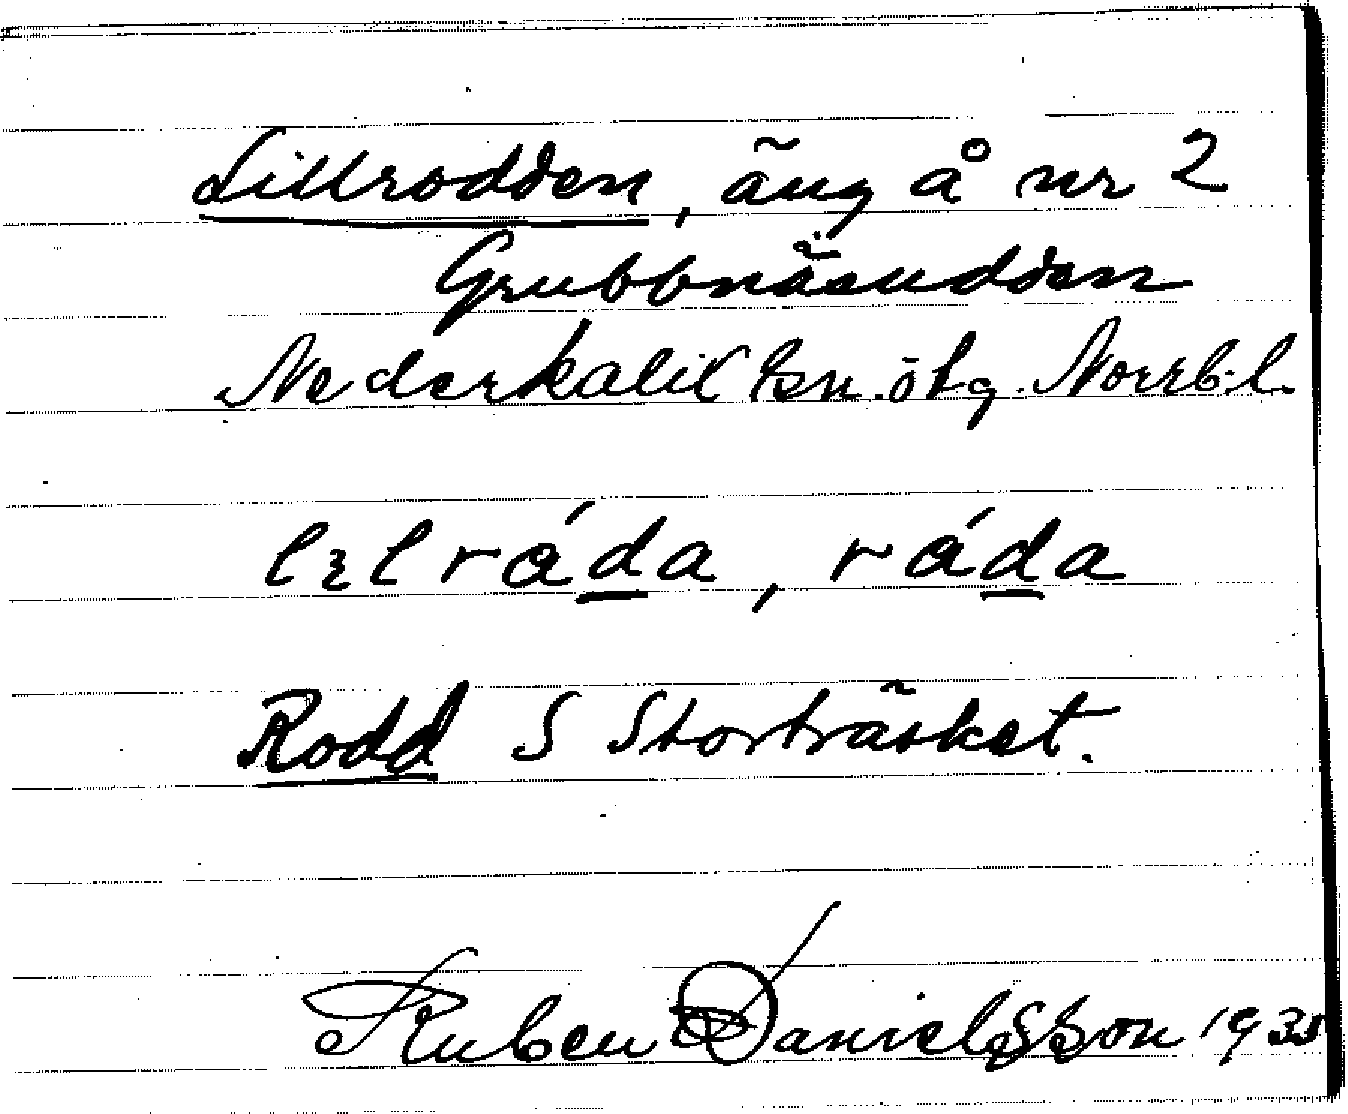 Lillrodden, äng å nr 2
Grubbnäsudden
Nederkalix sn. ökg. Norrb. l.
lɛlråda, råda
Rodd S Storträsket.
Ruben Danielsson 1935